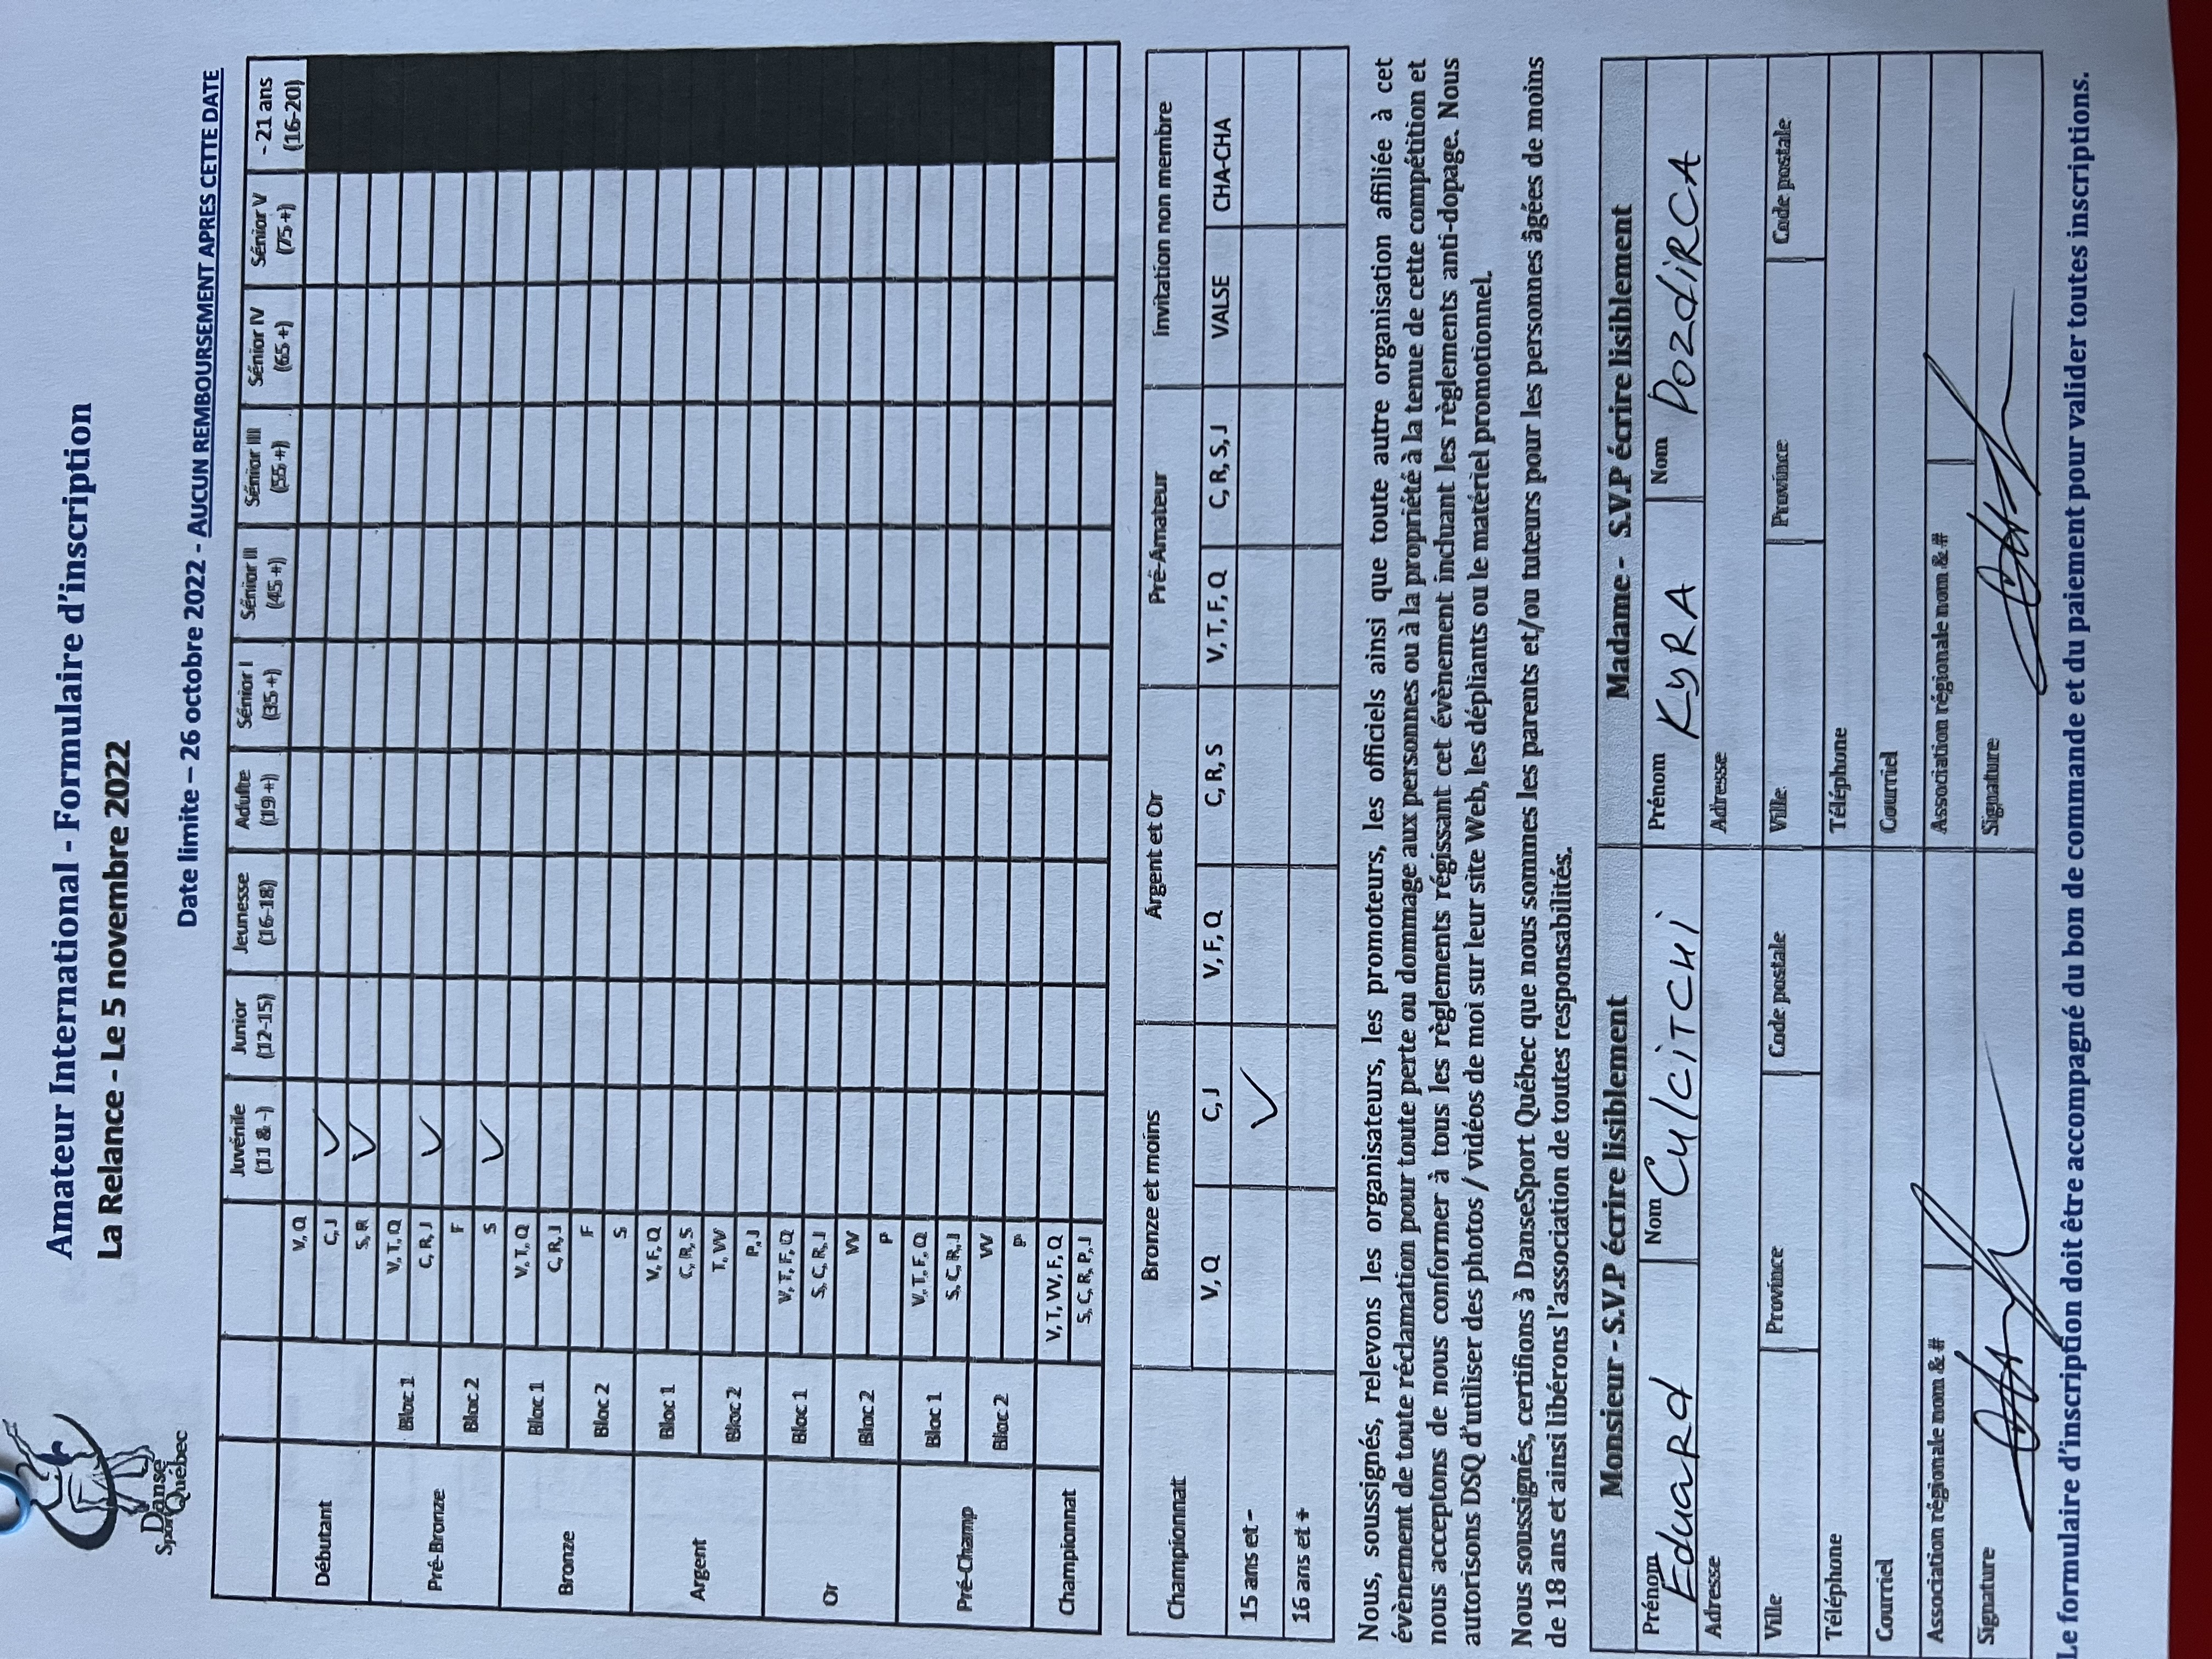 Danse
Sport Québec
Amateur International - Formulaire d'inscription
La Relance - Le 5 novembre 2022
Date limite – 26 octobre 2022 - AUCUN REMBOURSEMENT APRES CETTE DATE
Juvénile (11 & -) Junior (12-15) Jeunesse (16-18) Adulte (19 +) Sénior I (35 +) Sénior II (45 +) Sénior III (55 +) Sénior IV (65 +) Sénior V (75 +) - 21 ans (16-20)
Débutant
V, Q
C, J ✓
S, R ✓
Pré-Bronze
Bloc 1
V, T, Q
C, R, J ✓
Bloc 2
F
S ✓
Bronze
Bloc 1
V, T, Q
C, R, J
Bloc 2
F
S
Argent
Bloc 1
V, F, Q
C, R, S
Bloc 2
T, W
P, J
Or
Bloc 1
V, T, F, Q
S, C, R, J
Bloc 2
W
P
Pré-Champ
Bloc 1
V, T, F, Q
S, C, R, J
Bloc 2
W
P
Championnat
V, T, W, F, Q
S, C, R, P, J
Championnat
Bronze et moins Argent et Or Pré-Amateur Invitation non membre
V, Q C, J V, F, Q C, R, S V, T, F, Q C, R, S, J VALSE CHA-CHA
15 ans et - ✓
16 ans et +
Nous, soussignés, relevons les organisateurs, les promoteurs, les officiels ainsi que toute autre organisation affiliée à cet
évènement de toute réclamation pour toute perte ou dommage aux personnes ou à la propriété à la tenue de cette compétition et
nous acceptons de nous conformer à tous les règlements régissant cet évènement incluant les règlements anti-dopage. Nous
autorisons DSQ d'utiliser des photos / vidéos de moi sur leur site Web, les dépliants ou le matériel promotionnel.
Nous soussignés, certifions à DanseSport Québec que nous sommes les parents et/ou tuteurs pour les personnes âgées de moins
de 18 ans et ainsi libérons l'association de toutes responsabilités.
Monsieur - S.V.P écrire lisiblement Madame - S.V.P écrire lisiblement
Prénom Eduard Nom Culcitchi Prénom KYRA Nom POZdiRCA
Adresse Adresse
Ville Province Code postale Ville Province Code postale
Téléphone Téléphone
Courriel Courriel
Association régionale nom & # Association régionale nom & #
Signature Signature
Le formulaire d'inscription doit être accompagné du bon de commande et du paiement pour valider toutes inscriptions.